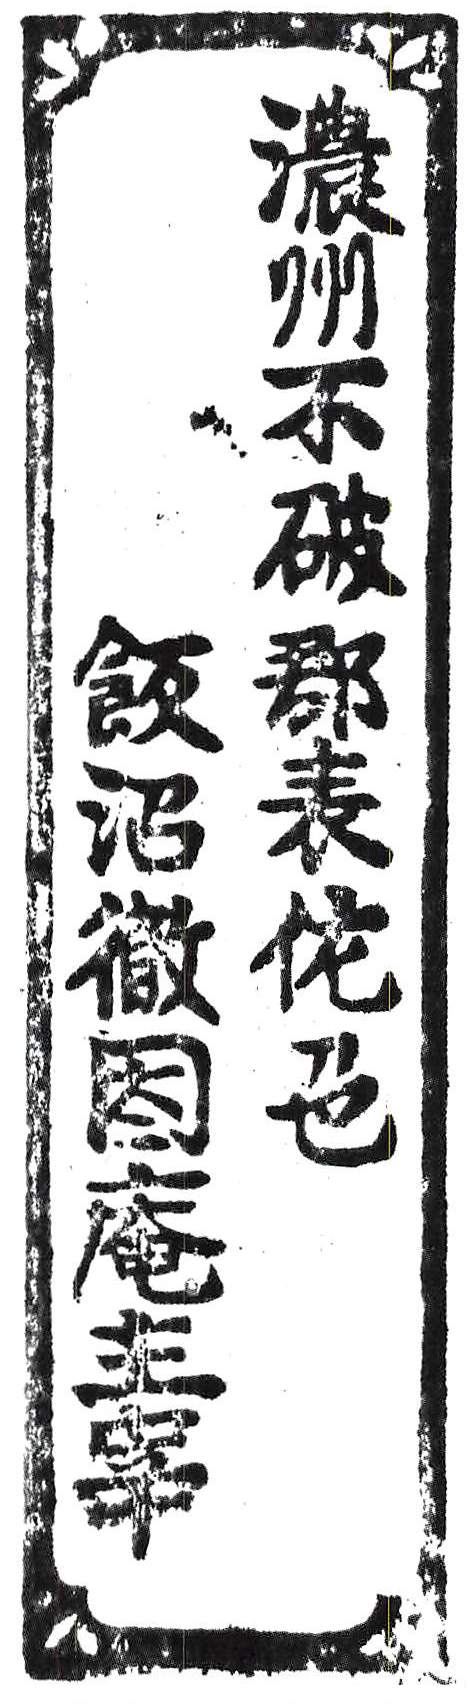 濃州不破郡表佐邑
飯沼徹図庵主宰